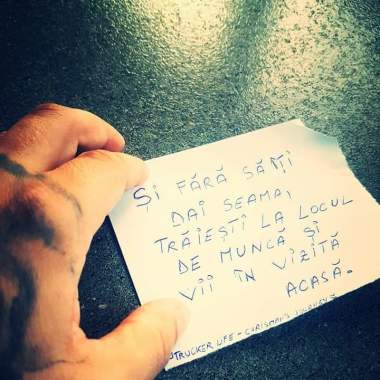 Și FĂRĂ SĂ ÎȚI
DAI SEAMA,
TRĂIEȘTI LA LOCUL
DE MUNCĂ ȘI
VII ÎN VIZITĂ
ACASĂ.
TRUCKER LIFE -